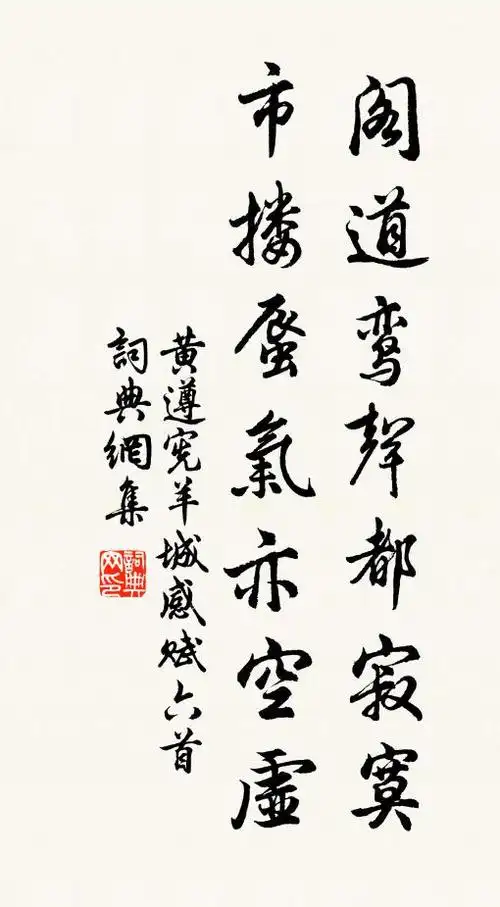 阁道鸾聲都寂寞
市楼蜃氣亦空虛
黄遵宪羊城感赋六首
詞典網集
詞典网印